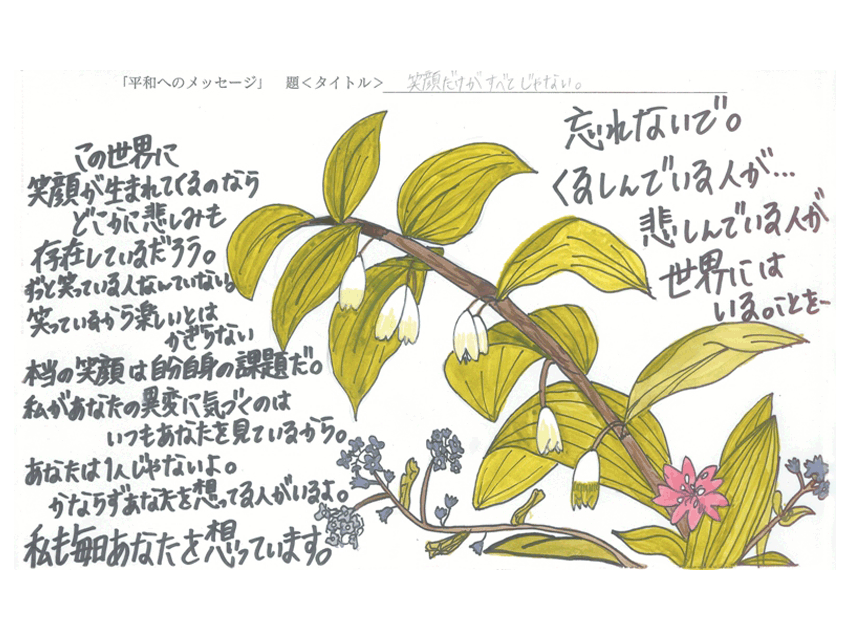 「平和へのメッセージ」 題<タイトル> 笑顔だけがすべてじゃない。
この世界に
笑顔が生まれてくるのなら
どこかに悲しみも
存在しているだろう。
ずっと笑っている人なんていない。
笑っているから楽しいとは
かぎらない
本当の笑顔は自分自身の課題だ。
私があなたの異変に気づくのは
いつもあなたを見ているから。
あなたは1人じゃないよ。
かならずあなたを想ってる人がいるよ。
私も毎日あなたを想っています。
忘れないで。
くるしんでいる人が…
悲しんでいる人が
世界には
いる。ことを-